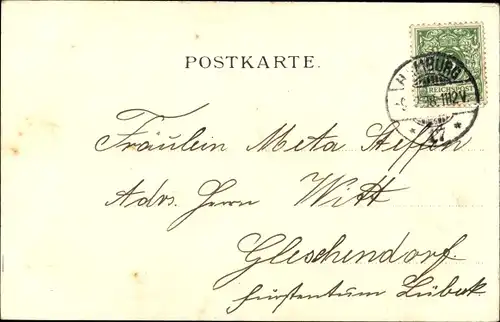 POSTKARTE.
REICHSPOST
HAMBURG
17
Fräulein Meta Steffen
Adrs. Herrn Witt
Gleschendorf.
Fürstentum Lübek